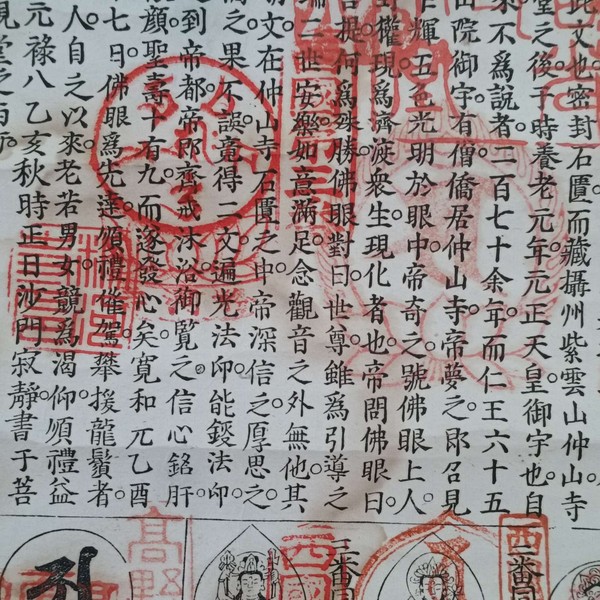 此文也密封石匱而藏攝州紫雲山仲山寺
堂之後于時養老元年元正天皇御宇也自
來不爲說者二百七十余年而仁王六十五
山院御宇有僧僑居仲山寺帝夢之郎召見
輝五色光明於眼中帝奇之號佛眼上人
權現爲濟渡衆生現化者也帝問佛眼曰
菩提何爲殊勝佛眼對曰世尊雖爲引導之
二世安樂如意滿足念觀音之外無他其
文在仲山寺石匱之中帝深信之厚思之
之果不誤竟得二文遍光法印能法印
之到帝都帝郎齋戒沐浴御覽之信心銘肝
顏聖壽十有九而遂發心矣寬和元乙酉
七日佛眼爲先達順禮催駕攀援龍鬚者
人自之以來老若男女競爲渴仰順禮益
元祿八乙亥秋時正日沙門寂靜書于菩
堂之西
西
二番
三番
西國
高野